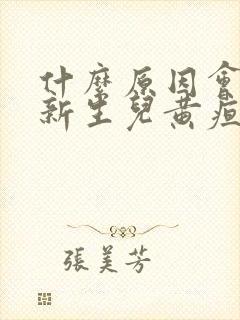 什麼原因會
新生兒黃疸
張美芳